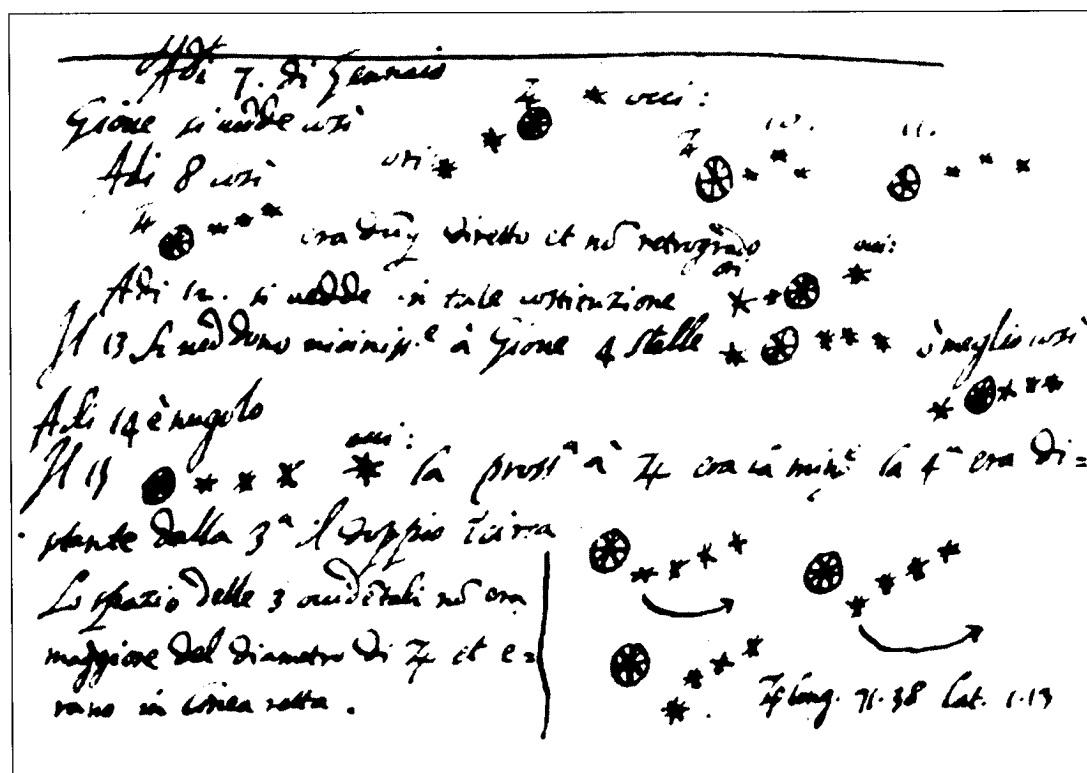 Adi 7. di Gennaio
Gione si uedde così
♃ occi:
Adi 8 così
ori:
♃ 10. 11.
♃ era dũq diretto et nõ retrogrado
Adi 12. si uedde in tale costituzione
ori occi:
Il 13 si ueddono minimiss.e à Gioue 4 stelle ò meglio così
Adi 14 è nugolo
Il 15 occi: la pross.a à ♃ era la min.e la 4.a era di=
stante dalla 3.a il doppio circa
Lo spazio delle 3 occidẽtali nõ era
maggiore del diametro di ♃ et e=
rano in linea retta.
♃ long. 71.38 Lat. 1.13